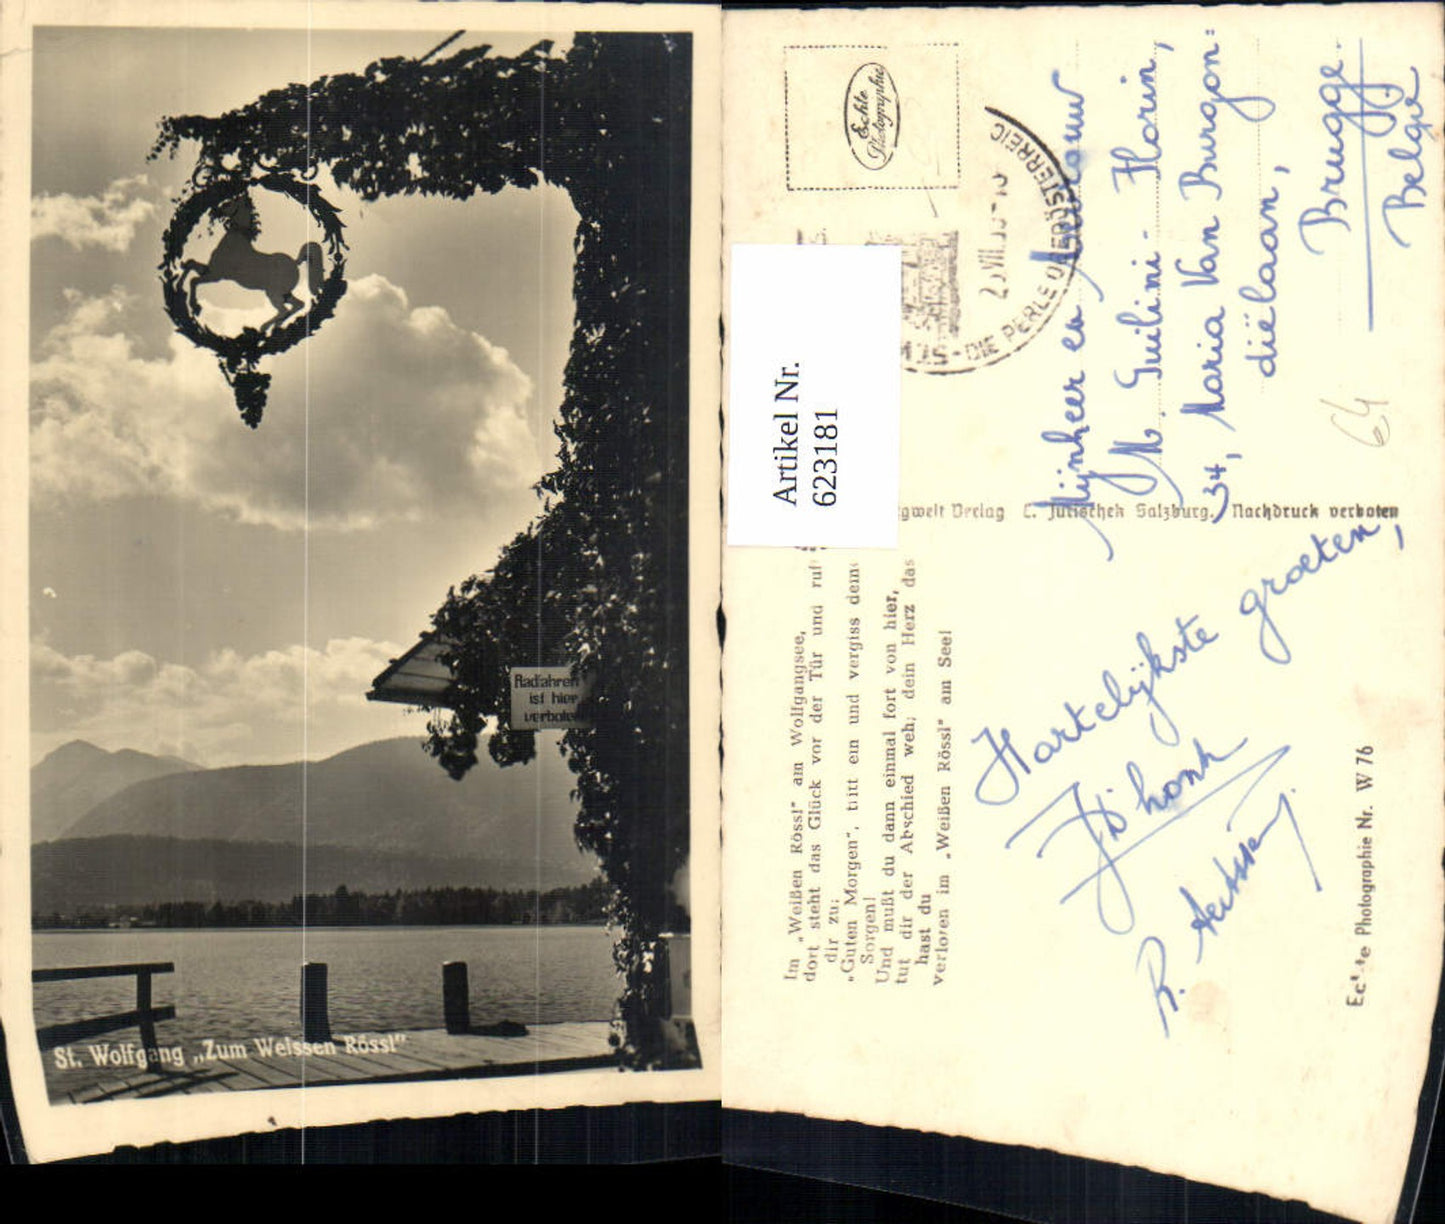 Radfahren
ist hier
verboten
St. Wolfgang „Zum Weissen Rössl"
Echte
Photographie
DIE PERLE OBERÖSTERREIC
Artikel Nr.
623181
Mijnheer en Mevrouw
M. Guilini - Florin,
34, Maria Van Burgon:
diëlaan,
Brugge.
Belgie
64
Verlag C. Jurischek Salzburg. Nachdruck verboten
Im „Weißen Rössl" am Wolfgangsee,
dort steht das Glück vor der Tür und ruf
dir zu:
„Guten Morgen", tritt ein und vergiss dein
Sorgen!
Und mußt du dann einmal fort von hier,
tut dir der Abschied weh; dein Herz das
hast du
verloren im „Weißen Rössl" am See!
Hartelijkste groeten,
R.
Echte Photographie Nr. W 76